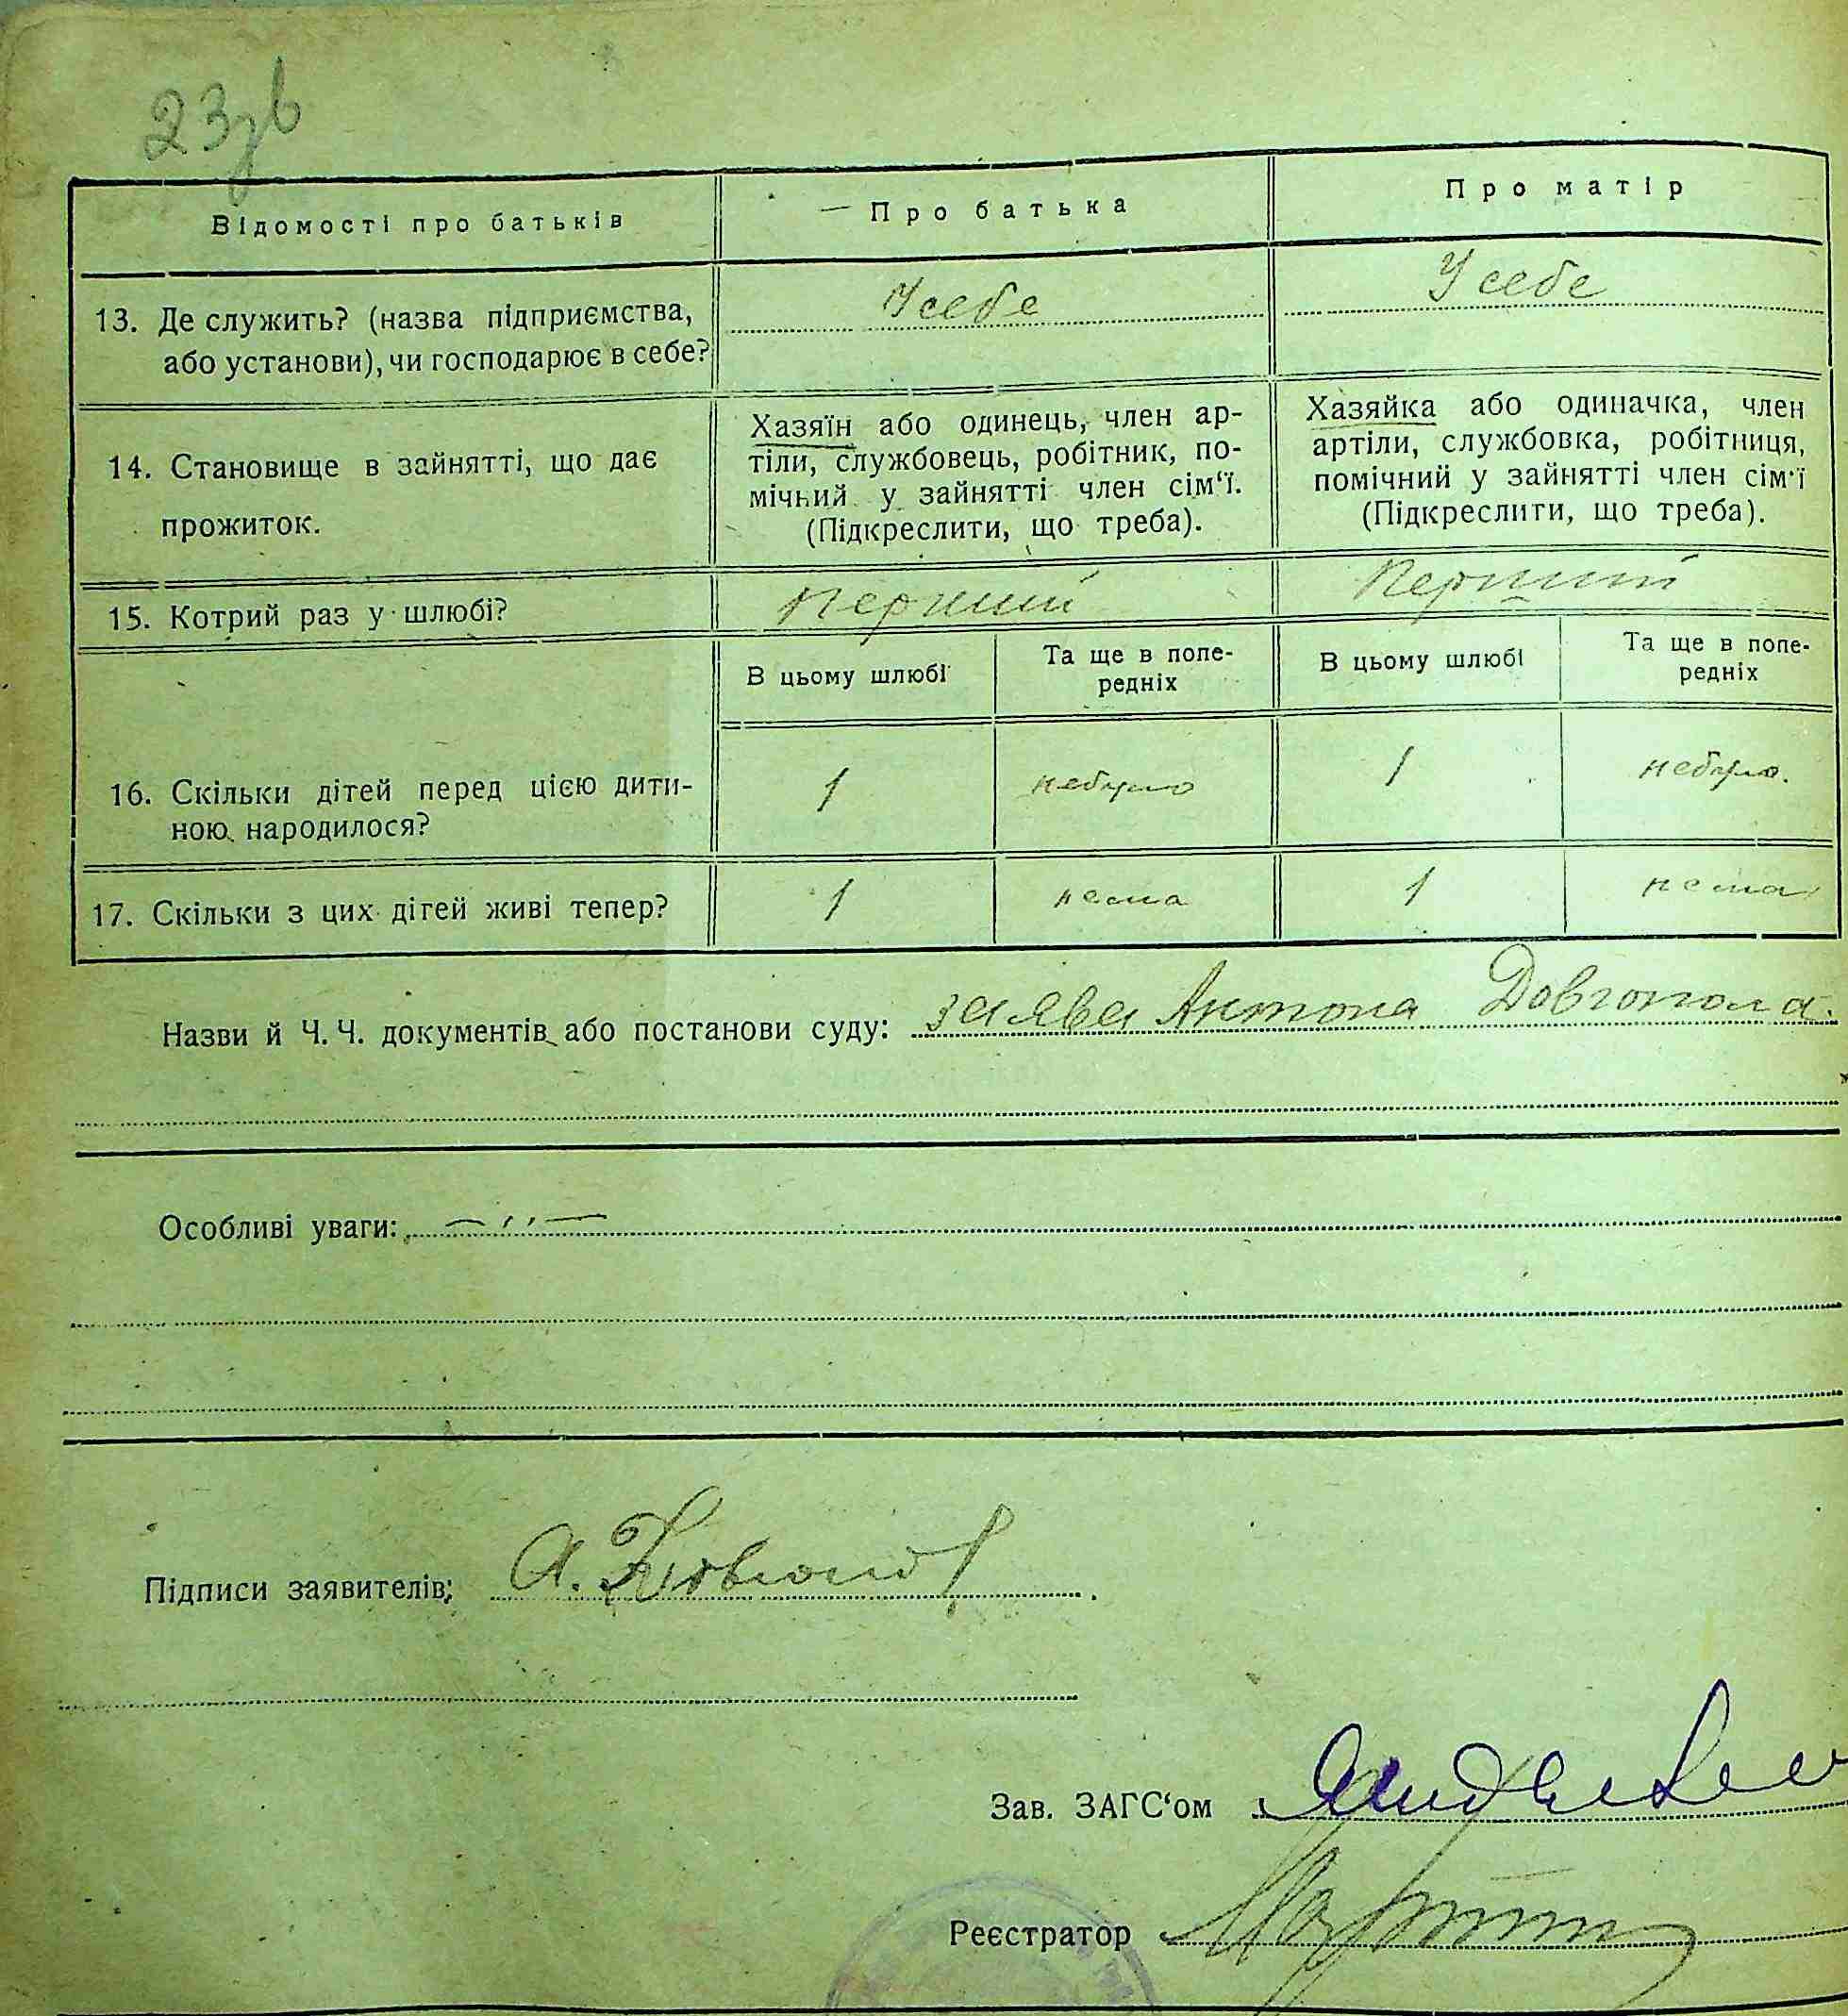 23зв
Відомості про батьків
— Про батька
Про матір
13. Де служить? (назва підприємства,
або установи), чи господарює в себе?
У себе
У себе
14. Становище в зайнятті, що дає
прожиток.
Хазяїн або одинець, член ар-
тіли, службовець, робітник, по-
мічний у зайнятті член сім‘ї.
(Підкреслити, що треба).
Хазяйка або одиначка, член
артіли, службовка, робітниця,
помічний у зайнятті член сім‘ї
(Підкреслити, що треба).
15. Котрий раз у шлюбі?
Перший
Перший
В цьому шлюбі
Та ще в попе-
редніх
В цьому шлюбі
Та ще в попе-
редніх
16. Скільки дітей перед цією дити-
ною народилося?
1
небуло
1
небуло.
17. Скільки з цих дітей живі тепер?
1
нема
1
нема
Назви й Ч. Ч. документів або постанови суду: заява Антона Довгопола.
Особливі уваги: —,,—
Підписи заявителів: А. Довгопол
Зав. ЗАГС‘ом
Реєстратор